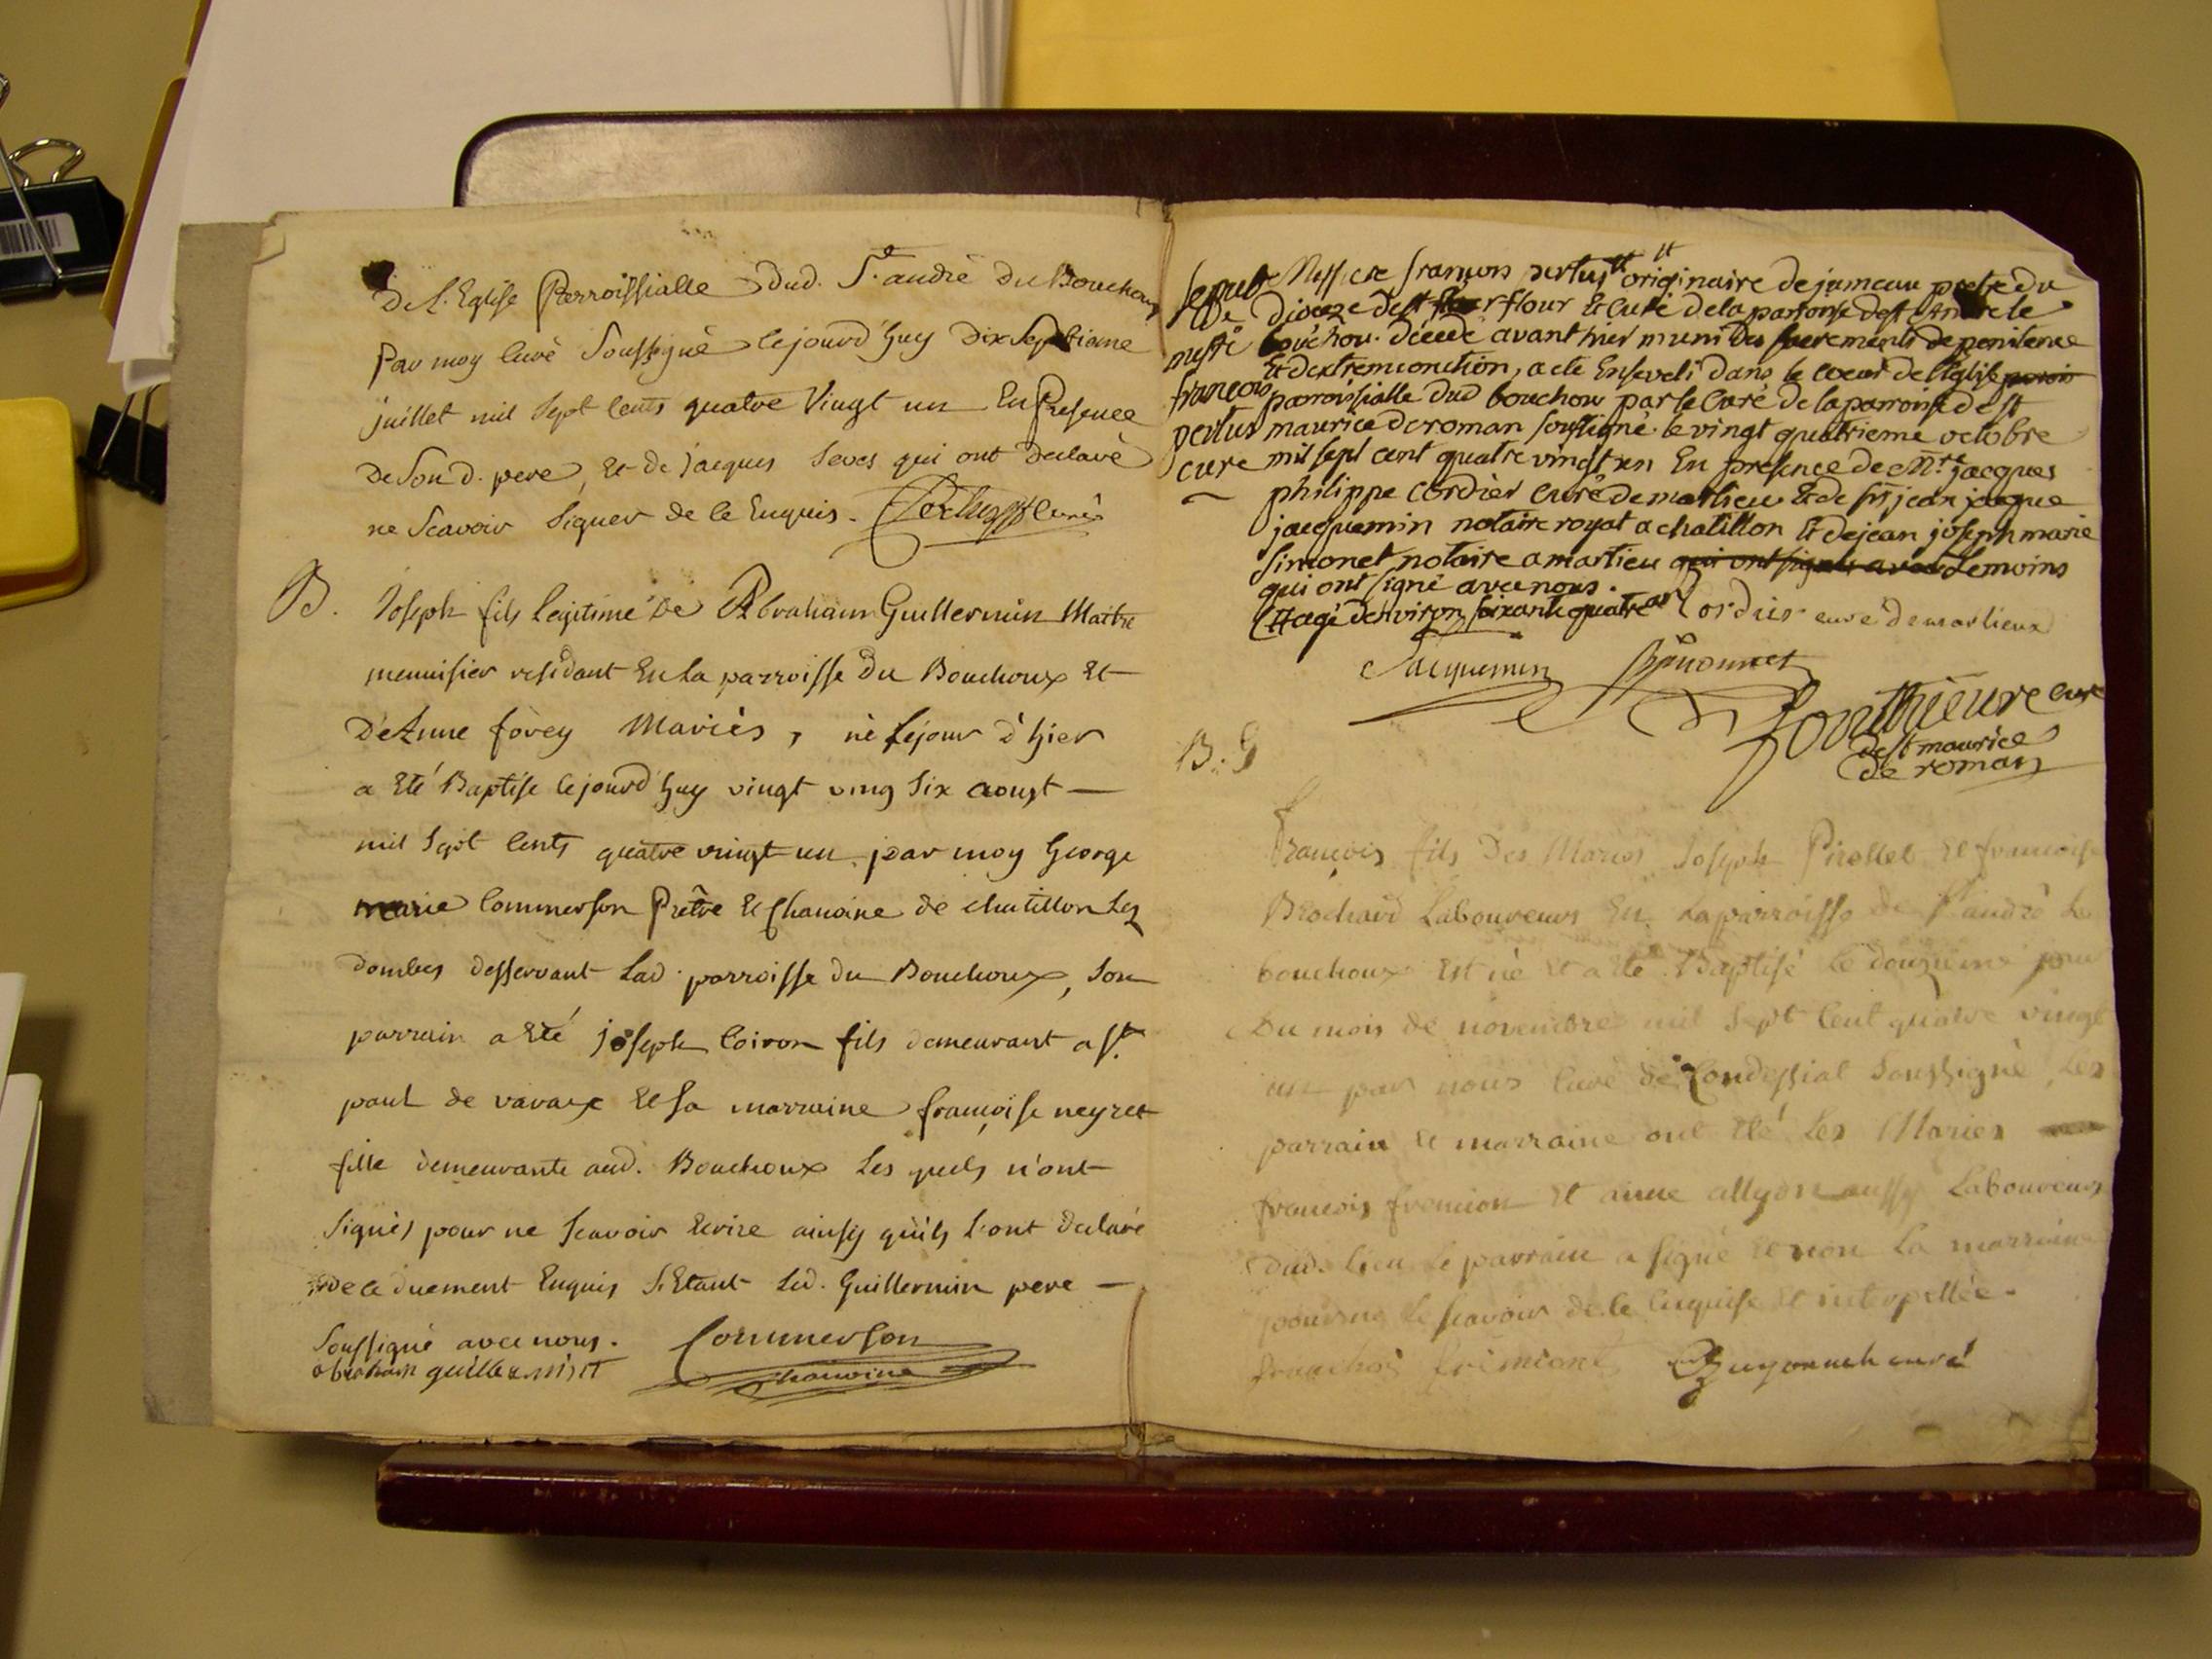 De L'Eglise Parroissialle Dud. St. andrè Du Bouchoux
Par moy Curè Soussignè Cejourd'huy Dix Septieme
juillet mil Sept Cents quatre Vingt un En Presence
De Son d. pere, Et de jacques Seves qui ont Declarè
ne Scavoir Signer de ce Enquis. Pertus Curè
B. Joseph fils Legitime De Abraham Guillermin Maitre
menuisier residant En La parroisse Du Bouchoux Et
D'Anne forey Mariès, nè Lejour d'hier
a Eté Baptise Cejourd'huy vingt ving Six aoust
mil Sept Cents quatre vingt un par moy George
marie Commerson Prêtre Et Chanoine de chatillon Les
dombes desservant Lad. parroisse du Bouchoux, Son
parrain a Eté joseph Coiron fils demeurant a St.
paul de varax Et Sa marraine françoise neyret
fille demeurante aud. Bouchoux Les quels n'ont
Signés pour ne Scavoir Ecrire ainsy qu'ils L'ont declaré
de ce duement Enquis S'Etant Led. Guillermin pere
Soussigné avec nous. Commerson
abraham guillermin chanoine
sepult Messire françois pertus originaire de jumeau pretre du
de Dioceze de st flour Et Curé de la parroisse de st André le
messi bouchou. décédé avant hier muni des sacrements de penitence
Et d'extremeonction, a ete Enseveli dans le coeur de l'Eglise
françois parroissialle dud bouchou par le Curé de la parroisse de st
pertus maurice de roman soussigné. le vingt quatrieme octobre
cure mil sept cent quatre vingt un En presence de Mre jacques
philippe Cordier curé de marlieu Et de sr jean jacque
jacquemin notaire royal a chatillon Et de jean joseph marie
Simonet notaire a marlieu qui ont signés avec temoins
qui ont signé avec nous.
Et agé d'environ soixante quatre an Cordier curé de marlieux
Jacquemin Simonnet
curé
de st maurice
de roman
B. G
François fils Des Mariés Joseph Pirollet Et francoise
Brochard Laboureurs En La parroisse de St andrè Le
bouchoux Est né Et a été Baptisé le douzieme jour
Du mois de novembre mil Sept Cent quatre vingt
un par nous Curé de Condessiat Soussigné, Les
parrain Et marraine ont Eté Les Mariés
francois fremion Et anne aussy Laboureurs
dud. Lieu Le parrain a signé Et non La marraine
pour ne Le scavoir de ce Enquise Et interpellée.
franchois fremiont curé